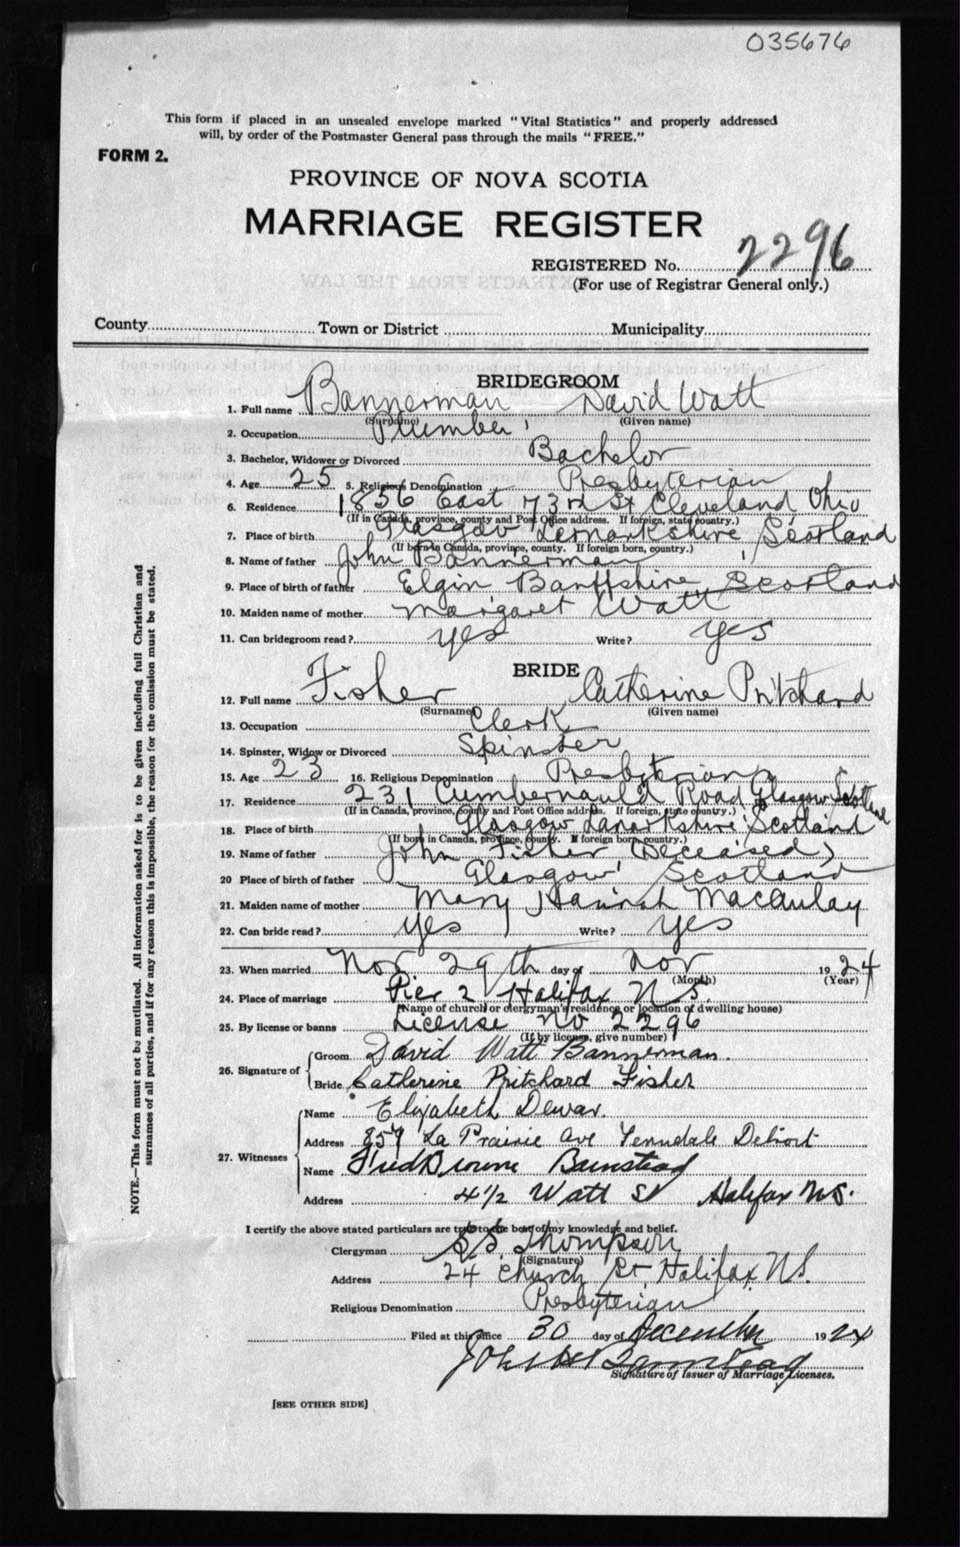 035676
This form if placed in an unsealed envelope marked "Vital Statistics" and properly addressed
will, by order of the Postmaster General pass through the mails "FREE."
FORM 2.
PROVINCE OF NOVA SCOTIA
MARRIAGE REGISTER
REGISTERED No. 2296
(For use of Registrar General only.)
County Town or District Municipality
BRIDEGROOM
1. Full name Bannerman David Watt
(Surname) (Given name)
2. Occupation Plumber
3. Bachelor, Widower or Divorced Bachelor
4. Age 25 5. Religious Denomination Presbyterian
6. Residence 1856 East 73rd St Cleveland Ohio
(If in Canada, province, county and Post Office address. If foreign, state country.)
7. Place of birth Glasgow Lernarkshire Scotland
(If born in Canada, province, county. If foreign born, country.)
8. Name of father John Bannerman
9. Place of birth of father Elgin Banffshire Scotland
10. Maiden name of mother Margaret Watt
11. Can bridegroom read? yes Write? yes
BRIDE
12. Full name Fisher Catherine Pritchard
(Surname) (Given name)
13. Occupation Clerk
14. Spinster, Widow or Divorced Spinster
15. Age 23 16. Religious Denomination Presbyterian
17. Residence 231 Cumbernauld Road Glasgow Scotland
(If in Canada, province, county and Post Office address. If foreign, state country.)
18. Place of birth Glasgow Lanarkshire Scotland
(If born in Canada, province, county. If foreign born, country.)
19. Name of father John Fisher (Deceased)
20 Place of birth of father Glasgow Scotland
21. Maiden name of mother Mary Hannah Macaulay
22. Can bride read? yes Write? yes
23. When married Nov 29th day of Nov 1924
(Month) (Year)
24. Place of marriage Pier 2 Halifax N S.
(Name of church or clergyman's residence or location of dwelling house)
25. By license or banns License No 2296
(If by license, give number)
26. Signature of
Groom David Watt Bannerman.
Bride Catherine Pritchard Fisher
27. Witnesses
Name Elizabeth Dewar.
Address 857 La Prairie Ave Ferndale Detroit
Name Fred Browne Bainstead
Address 4 1/2 Watt St Halifax N.S.
I certify the above stated particulars are true to the best of my knowledge and belief.
Clergyman Thompson
(Signature)
Address 24 Church St. Halifax N.S.
Religious Denomination Presbyterian
Filed at this office 30 day of December 1924
John
Signature of Issuer of Marriage Licenses.
[SEE OTHER SIDE]
NOTE.—This form must not be mutilated. All information asked for is to be given including full Christian and
surnames of all parties, and if for any reason this is impossible, the reason for the omission must be stated.